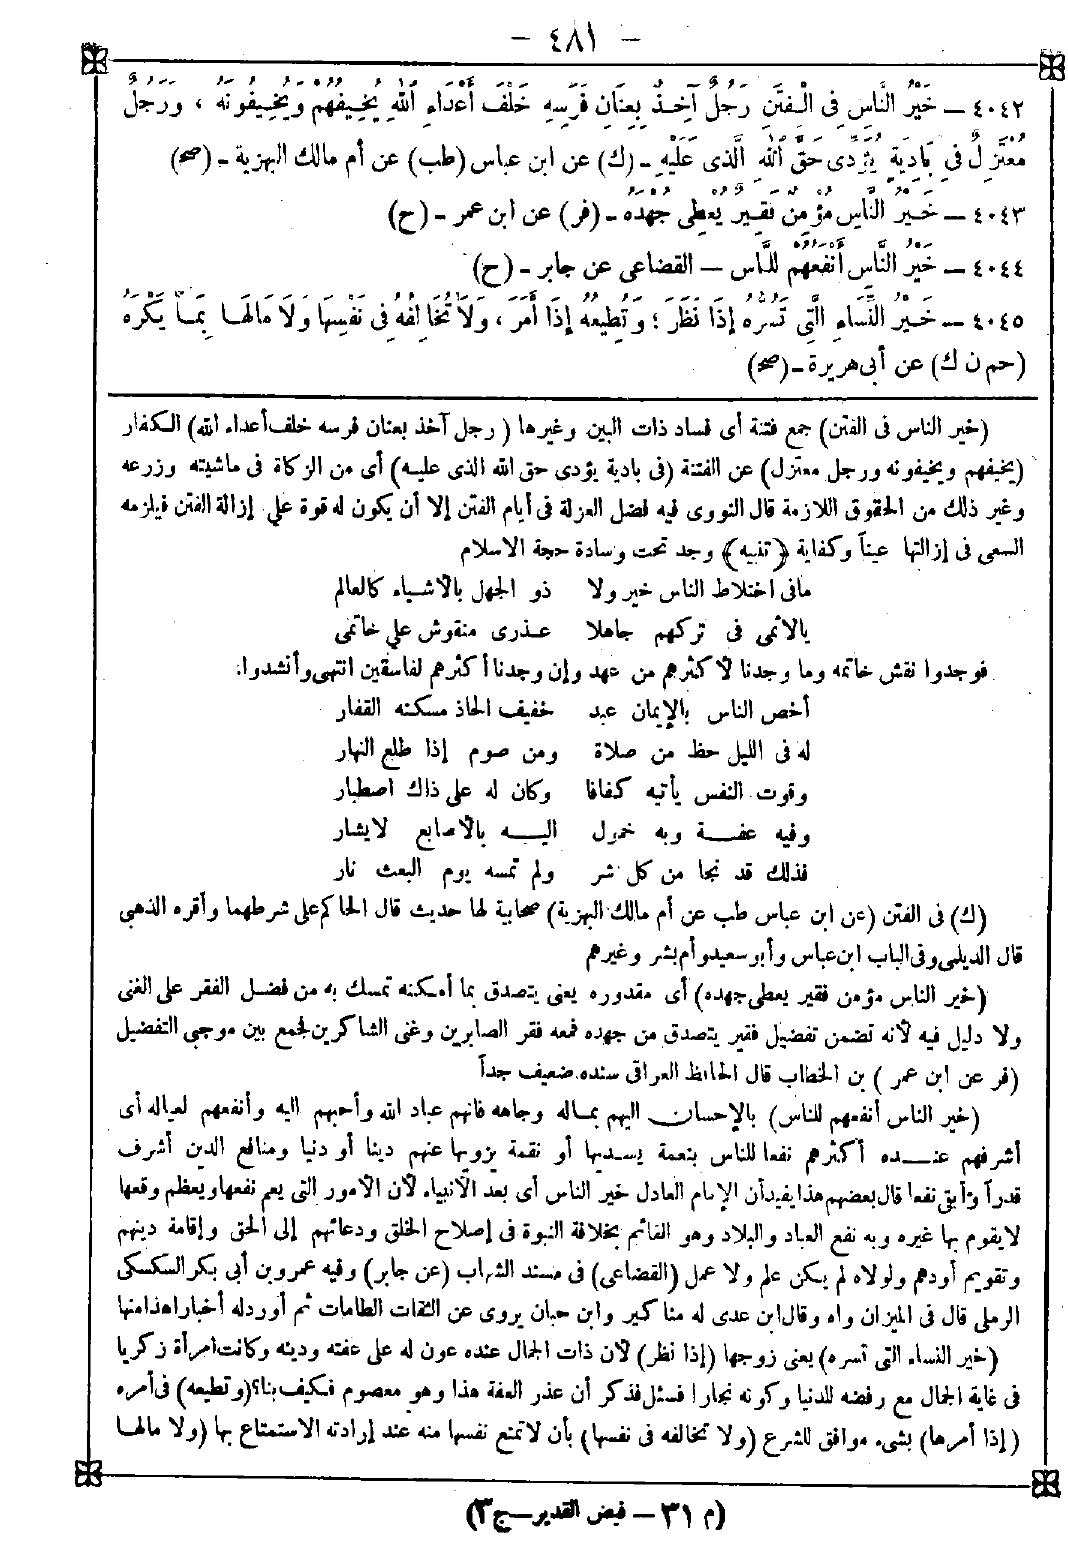 - ٤٨١ -
٤٠٤٢ — خَيْرُ النَّاسِ فِى الْفِتَنِ رَجُلٌ آخِذٌ بِعِنَانِ فَرَسِهِ خَلْفَ أَعْدَاءِ اللهِ يُخِيفُهُمْ وَيُخِيفُونَهُ ، وَرَجُلٌ
مُعْتَزِلٌ فِى بَادِيَةٍ يُؤَدِّى حَقَّ اللهِ الَّذِى عَلَيْهِ - (ك) عن ابن عباس (طب) عن أم مالك البهزية - (صح)
٤٠٤٣ — خَيْرُ النَّاسِ مُؤْمِنٌ فَقِيرٌ يُعْطِى جُهْدَهُ - (فر) عن ابن عمر - (ح)
٤٠٤٤ — خَيْرُ النَّاسِ أَنْفَعُهُمْ لِلنَّاسِ — القضاعى عن جابر - (ح)
٤٠٤٥ — خَيْرُ النِّسَاءِ الَّتِى تَسُرُّهُ إِذَا نَظَرَ ؛ وَتُطِيعُهُ إِذَا أَمَرَ ، وَلَا تُخَالِفُهُ فِى نَفْسِهَا وَلَا مَالِهَا بِمَا يَكْرَهُ
(حم ن ك) عن أبى هريرة - (صح)
(خير الناس فى الفتن) جمع فتنة أى فساد ذات البين وغيرها ( رجل آخذ بعنان فرسه خلف أعداء الله) الكفار
(يخيفهم ويخيفونه ورجل معتزل) عن الفتنة (فى بادية يؤدى حق الله الذى عليه) أى من الزكاة فى ماشيته وزرعه
وغير ذلك من الحقوق اللازمة قال النووى فيه فضل العزلة فى أيام الفتن إلا أن يكون له قوة على إزالة الفتن فيلزمه
السعى فى إزالتها عيناً وكفاية (تنبيه) وجد تحت وسادة حجة الاسلام
مافى اختلاط الناس خير ولا ذو الجهل بالأشياء كالعالم
يالائمى فى تركهم جاهلا عذرى منقوش على خاتمى
فوجدوا نقش خاتمه وما وجدنا لأكثرهم من عهد وإن وجدنا أكثرهم لفاسقين انتهى وأنشدوا:
أخص الناس بالإيمان عبد خفيف الحاذ مسكنه القفار
له فى الليل حظ من صلاة ومن صوم إذا طلع النهار
وقوت النفس يأتيه كفافا وكان له على ذاك اصطبار
وفيه عفة وبه خمول اليه بالأصابع لايشار
فذلك قد نجا من كل شر ولم تمسه يوم البعث نار
(ك) فى الفتن (عن ابن عباس طب عن أم مالك البهزية) صحابية لها حديث قال الحاكم على شرطهما وأقره الذهبى
قال الديلمى وفى الباب ابن عباس وأبو سعيد وأم بشر وغيرهم
(خير الناس مؤمن فقير يعطى جهده) أى مقدوره يعنى يتصدق بما أمكنه تمسك به من فضل الفقر على الغنى
ولا دليل فيه لأنه تضمن تفضيل فقير يتصدق من جهده فمعه فقر الصابرين وغنى الشاكرين لجمع بين موجبى التفضيل
(فر عن ابن عمر ) بن الخطاب قال الحافظ العراقى سنده ضعيف جداً
(خير الناس أنفعهم للناس) بالإحسان اليهم بماله وجاهه فانهم عباد الله وأحبهم اليه وأنفعهم لعياله أى
أشرفهم عنده أكثرهم نفعا للناس بنعمة يسديها أو نقمة يزويها عنهم دينا أو دنيا ومنافع الدين أشرف
قدراً وأبقى نفعا قال بعضهم هذا يفيد أن الإمام العادل خير الناس أى بعد الأنبياء لأن الأمور التى يعم نفعها ويعظم وقعها
لايقوم بها غيره وبه نفع العباد والبلاد وهو القائم بخلافة النبوة فى إصلاح الخلق ودعائهم إلى الحق وإقامة دينهم
وتقويم أودهم ولولاه لم يكن علم ولا عمل (القضاعى) فى مسند الشهاب (عن جابر) وفيه عمرو بن أبى بكر السكسكى
الرملى قال فى الميزان واه وقال ابن عدى له مناكير وابن حبان يروى عن الثقات الطامات ثم أورد له أخبارا هذا منها
(خير النساء التى تسره) يعنى زوجها (إذا نظر) لأن ذات الجمال عنده عون له على عفته ودينه وكانت امرأة زكريا
فى غاية الجمال مع رفضه للدنيا وكونه نجارا فسئل فذكر أن عذر العفة هذا وهو معصوم فكيف بنا؟ (وتطيعه) فى أمره
(إذا أمرها) بشىء موافق للشرع (ولا تخالفه فى نفسها) بأن لاتمنع نفسها منه عند إرادته الاستمتاع بها (ولا مالها
(م ٣١ — فيض القدير — ج٣)